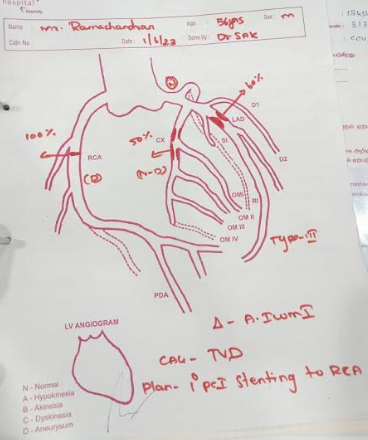 Hospital
Name : Mr. Ramachandran Age : 56yrs Sex : M
Cath No : Date : 1/6/23 Done by : Dr SAK
N
60%
D1
LAD
100%
50% CX
SI
RCA
D2
(D) (N-D)
OMI RI
OM II
OM III
OM IV
Type-III
PDA
LV ANGIOGRAM
Δ - A.IWMI
CAG - TVD
Plan - 1° PCI Stenting to RCA
N - Normal
A - Hypokinesia
B - Akinesia
C - Dyskinesia
D - Aneurysum
CCU